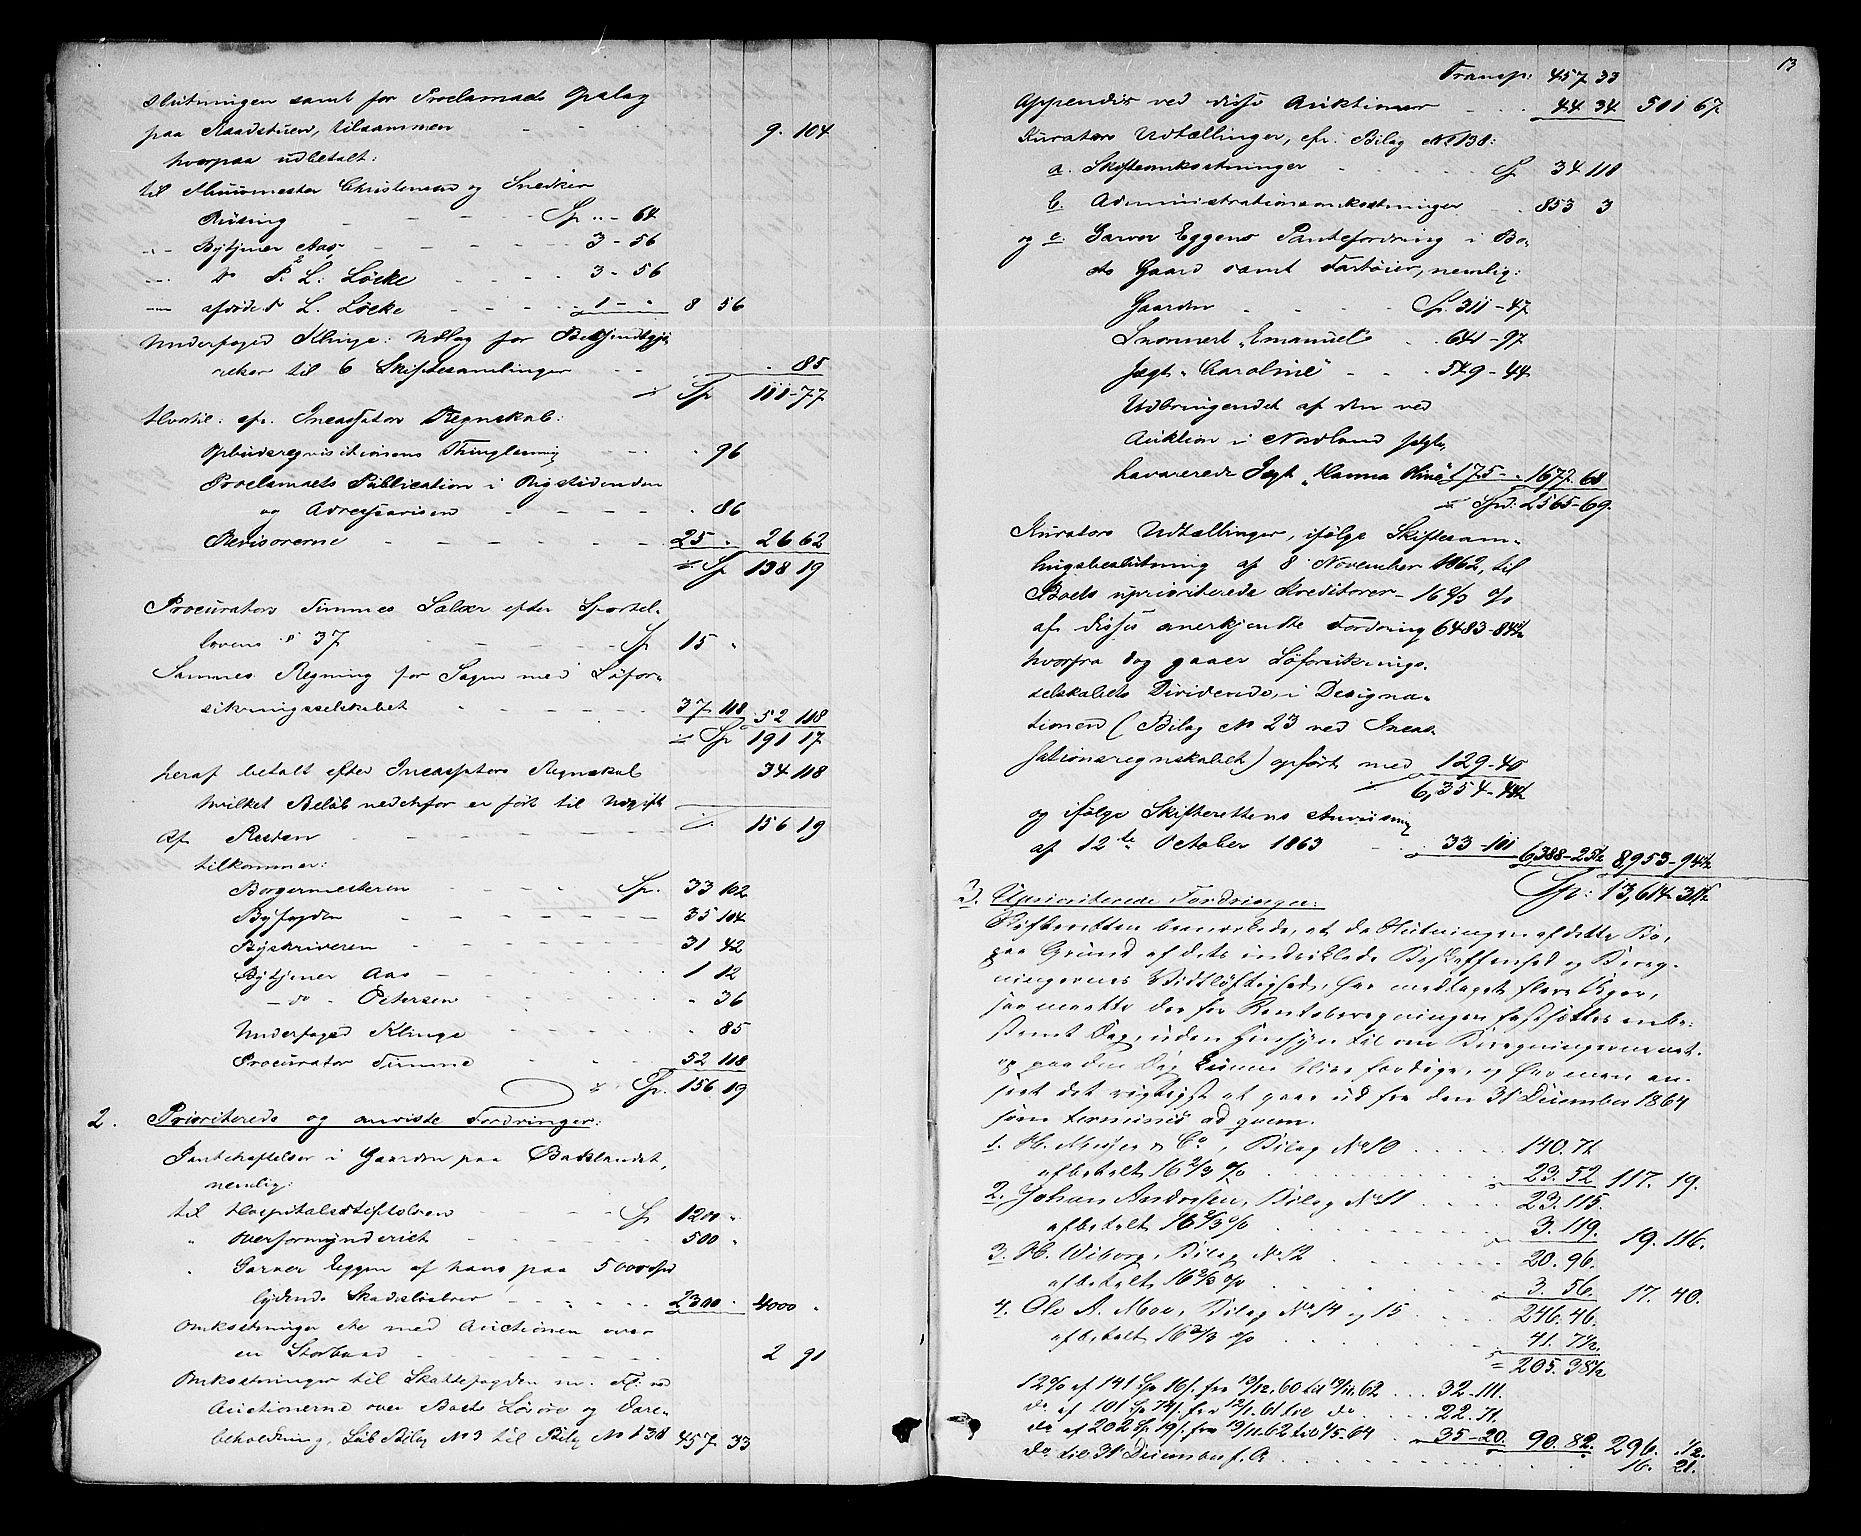 Slutningen samt for Proclamaets Opslag
paa Raadstuen, tilsammen - - - 9. 104
hvorpaa udbetalt:
til Muurmester Christensen og Snedker
Rüsing - - - - Sp „ - 64
„ Bytjener Aas - - - - 3 - 56
„ do P. L. Löcke - - - 3 - 56
„ afdöde P. L. Löcke - - - 1 - „ 8 56
Underfoged Klinge: Udlag for Bekjendtgjö-
relser til 6 Skiftesamlinger - - - . 85
Sp 111-77
Hertil: cfr. Incassators Regnskab:
Opbudsreqvisitionens Thinglæsning - - . 96
Proclamaets Publication i Rigstidenden
og Adresseavisen - - - - . 86
Revisorerne - - - - - - 25 . 26 62
Sp 138 19
Procurators Timmes Salær efter Sportel-
lovens § 37 - - - - Sp 15 „
Sammes Regning for Sagen med Söfor-
sikringsselskabet - - - - - 37 118 52 118
Sp 191 17
heraf betalt efter Incassators Regnskab 34 118
hvilket Belöb nedenfor er fört til Udgift
Af Resten - - - - - - 156 19
tilkommer:
Borgermesteren - - - - Sp. 33 102
Byfogden - - - - - 35 104
Byskriveren - - - - - 31 42
Bytjener Aas - - - - 1 12
- do - Petersen - - - - „ 36
Underfoged Klinge - - - - . 85
Procurator Timme - - - 52 118
Sp. 156 19
2. Prioriterede og anviste Fordringer:
Pantehæftelser i Gaarden paa Baklandet,
nemlig:
til Hospitalsstiftelsen - - - - Sp 1200 „
„ Overformynderiet - - - - 500 „
„ Garver Eggen af hans paa 5000 Spd
lydende Skadeslösbrev - - - - 2300 . 4000 .
Omkostninger etc med Auctionen over
en Storbaad - - - - - 2 91
Omkostninger til Skattefogden m. Fl. ved
Auctionerne over Boets Lösöre og Vare-
beholdning, Löb Bilag No 3 til Bilag No 138 457 33
13
Transp: 457 33
Appendix ved disse Auktioner - - . 44 34 501 67.
Kurators Udtællinger, cfr. Bilag No 138:
a. Skifteomkostninger - - - - Sp 34 118
b. Administrationsomkostninger - . 853 3
og c. Garver Eggens Pantefordring i Bo-
ets Gaard samt Fartöier, nemlig:
Gaarden - - - - Sp. 311 - 47
Snorrert „Emanuel" . . 641 - 97
Jægt „Caroline" - - . 549 - 44
Udbringendet af den ved
Auktion i Nordland solgte,
havarerede Jægt „Hanna Oline" 175 - „ 1677. 68
Spd: 2565-69.
Kurators Udtællinger, ifölge Skiftesam-
lingsbeslutning af 8 November 1862, til
Boets uprioriterede Kreditorer - 16 2/3 o/o
af disses anerkjendte Fordring 6483-84½
hvorfra dog gaaer Söforsikrings-
selskabets Dividende, i Designa-
tionen (Bilag No 23 ved Incas-
sationsregnskabet) opfört med 129-40
6,354-44½
og ifölge Skifterettens Anvisning
af 12te October 1863 - 33-101 6388-25½ 8,953-94½
Sp: 13,614 30½
3. Uprioriterede Fordringer:
Skifteretten bemærkede, at da Slutningen af dette Bo,
paa Grund af dets indviklede Beskaffenhed og Bereg-
ningernes Vidtlöftighed, har medtaget flere Uger,
saa maatte der for Renteberegningen fastsættes en be-
stemt Dag, uden Hensyn til om Beregningerne net-
op paa den Dag kunne blive færdige, og har man an-
seet det rigtigst at gaae ud fra den 31 December 1864
som terminus ad quem.
1. H. Meyer & Co, Bilag No 10 . . . . . 140. 71
afbetalt 16 2/3 o/o . . . . . 23. 52 117. 19.
2. Johan Andresen, Bilag No 11 . . . . . 23. 115.
afbetalt 16 2/3 o/o . . . . . 3. 119. 19. 116.
3. H. Wiborg, Bilag No 12 . . . . . 20. 96.
afbetalt 16 2/3 o/o . . . . . 3. 56. 17. 40.
4. Ole A. Moe, Bilag No 14 og 15 . . . . . 246. 46.
afbetalt 16 2/3 o/o . . . . . 41. 7½
= 205. 38½
12% af 141 Sp 16 s. fra 13/12. 60 til 13/11. 62 . . . 32. 111.
do af 101 Sp 74 s. fra 12/1. 61 til do . . . 22. 71.
do af 202 Sp 19 s. fra 13/11. 62 til 1/5. 64 . . 35-20. 90. 82. 296. ½.
do til 31 December s. A. . . . . . 16. 21.